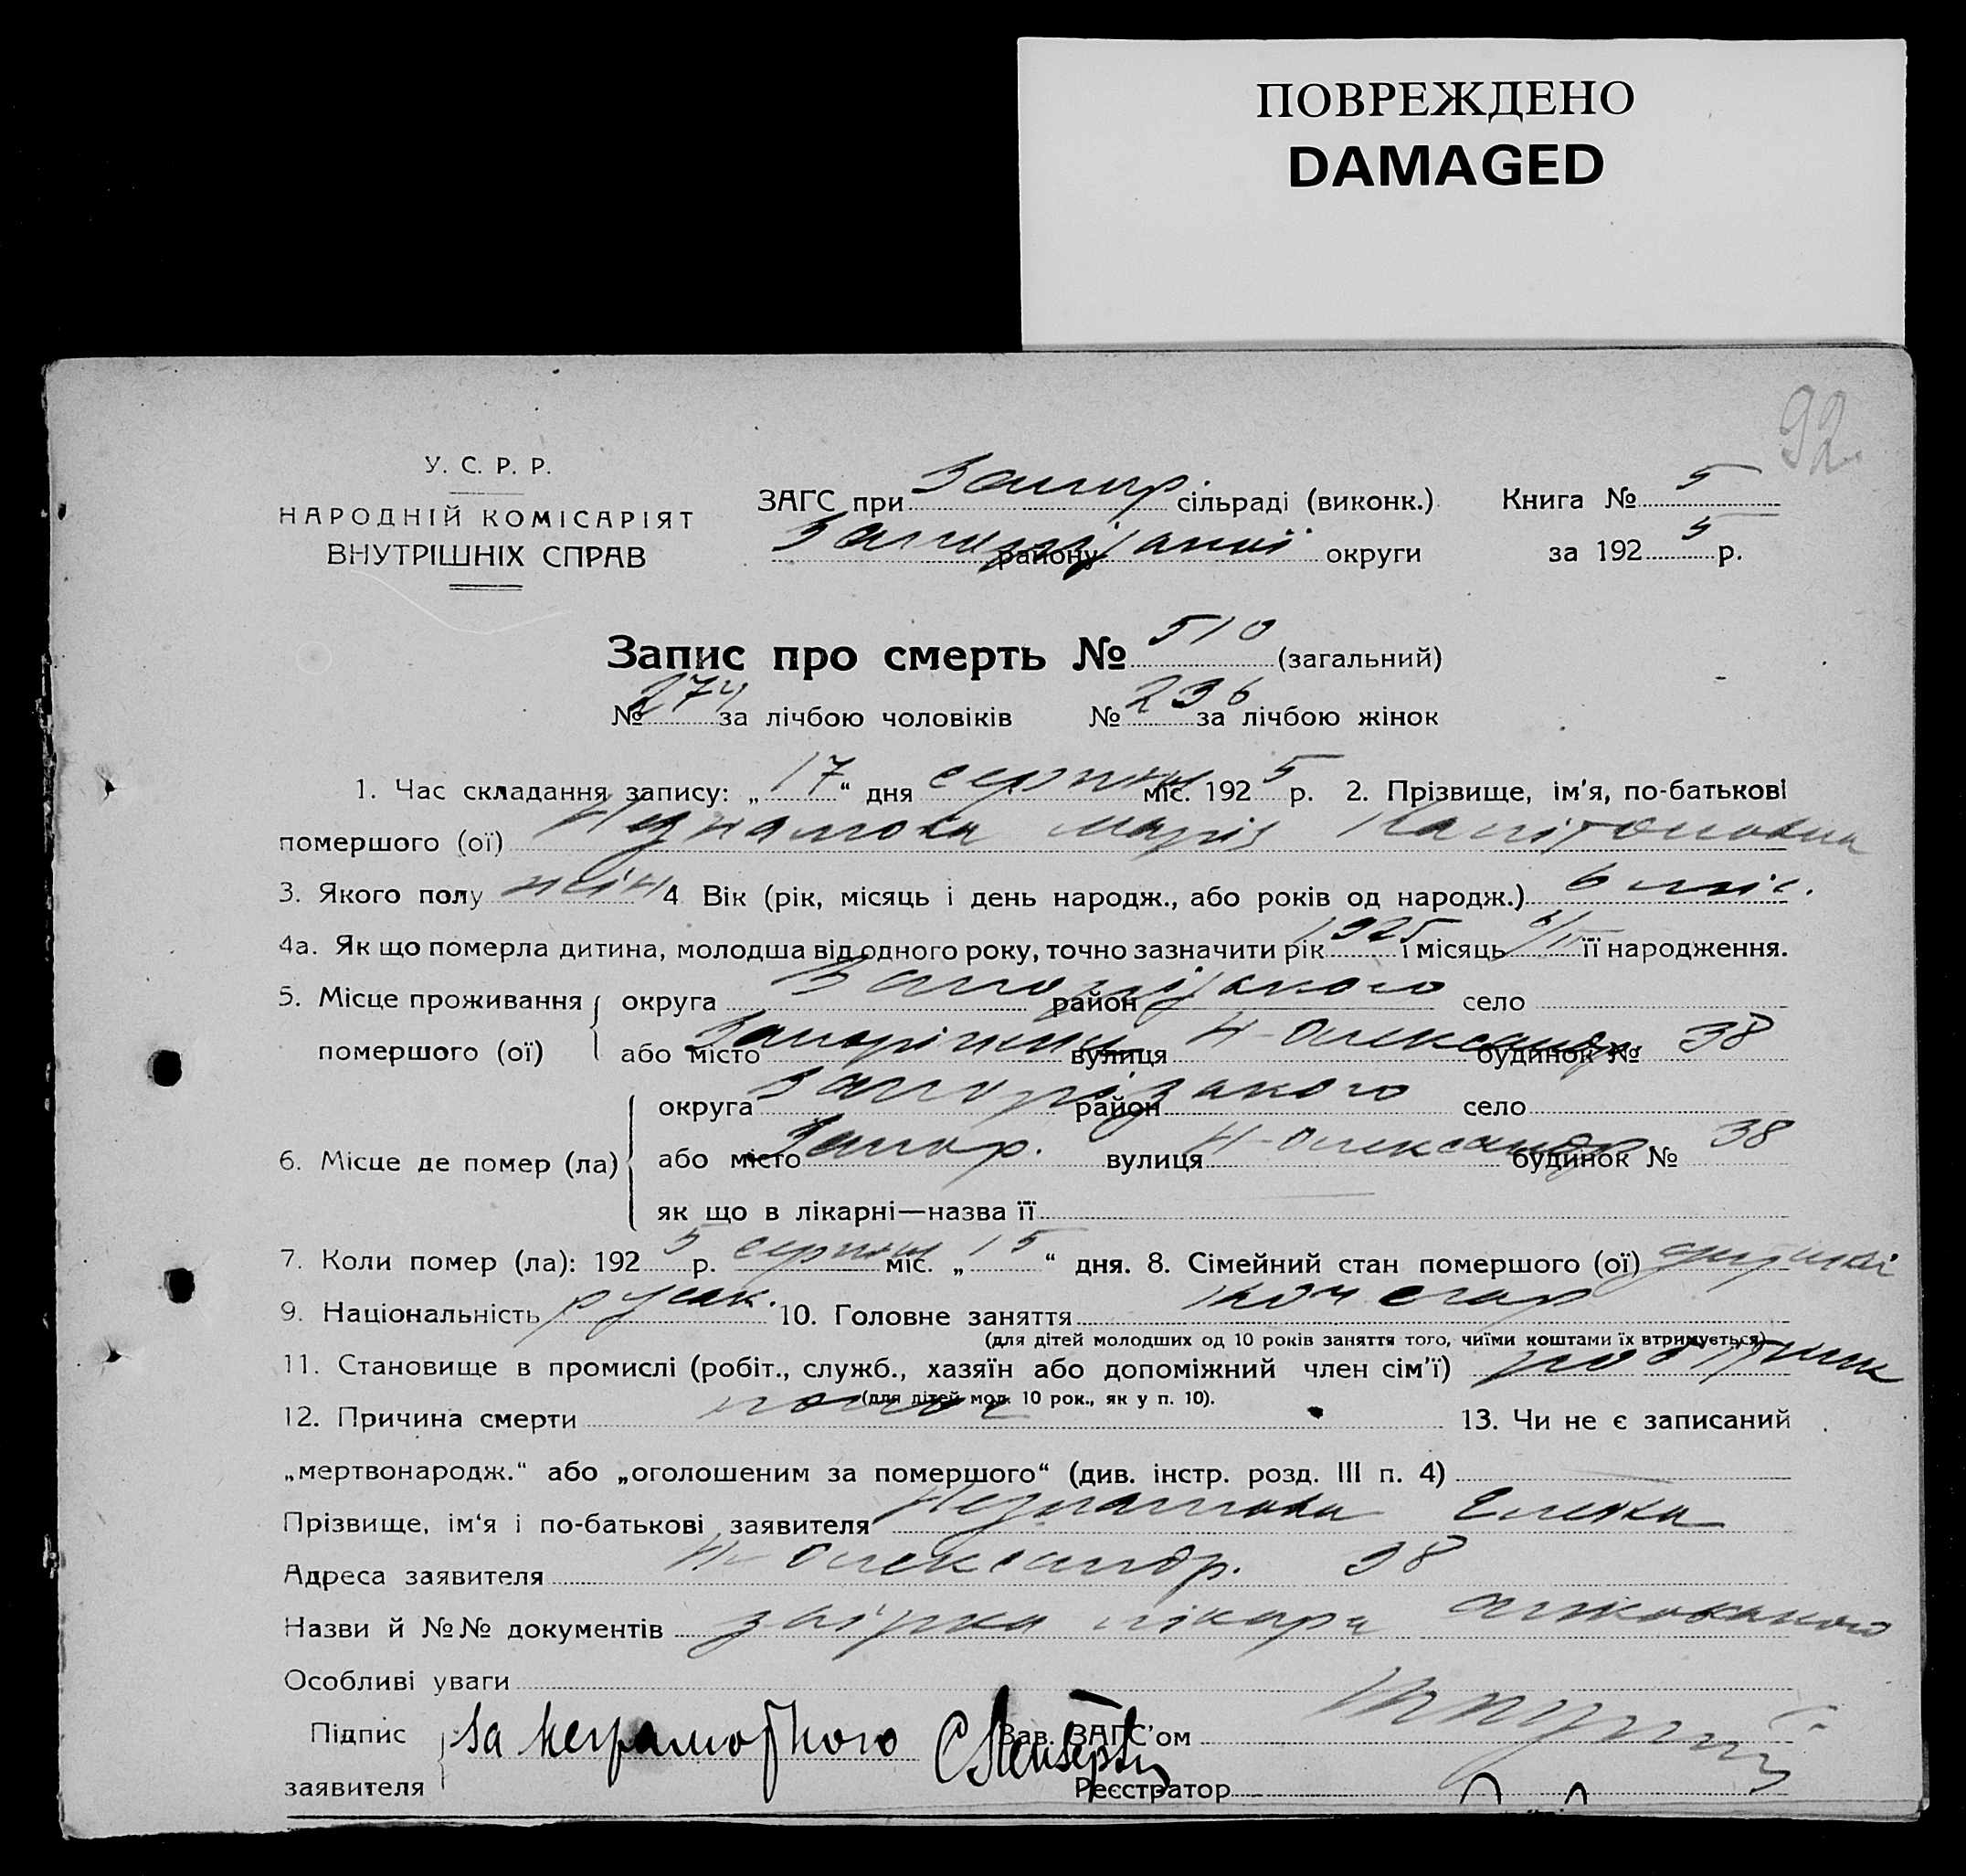 ПОВРЕЖДЕНО
DAMAGED
92
У. С. Р. Р.
НАРОДНІЙ КОМІСАРІЯТ
ВНУТРІШНІХ СПРАВ
ЗАГС при Запор. сільраді (виконк.) Книга № 5
району Запорізької округи за 1925 р.
Запис про смерть № 510 (загальний)
№ 274 за лічбою чоловіків № 236 за лічбою жінок
1. Час складання запису: „17“ дня серпня міс. 1925 р. 2. Прізвище, ім'я, по-батькові
помершого (ої) Марія Капітоновна
3. Якого полу жін 4 Вік (рік, місяць і день народж., або років од народж.) 6 міс.
4а. Як що померла дитина, молодша від одного року, точно зазначити рік 1925 і місяць її народження.
5. Місце проживання помершого (ої) округа Запорізького район село
або місто Запоріжжя вулиця Н-Олександр. будинок № 38
6. Місце де помер (ла) округа Запорізького район село
або місто Запор. вулиця Н-Олександр будинок № 38
як що в лікарні—назва її
7. Коли помер (ла): 1925 р. серпня міс. „15“ дня. 8. Сімейний стан помершого (ої)
9. Національність руськ. 10. Головне заняття кочегар
(для дітей молодших од 10 років заняття того, чиїми коштами їх втримується)
11. Становище в промислі (робіт., служб., хазяїн або допоміжний член сім'ї) робітник
(для дітей мол. 10 рок., як у п. 10).
12. Причина смерти понос 13. Чи не є записаний
„мертвонародж.“ або „оголошеним за помершого“ (див. інстр. розд. III п. 4)
Прізвище, ім'я і по-батькові заявителя Елена
Адреса заявителя Н-Олександр. 38
Назви й №№ документів лікаря
Особливі уваги
Підпис заявителя За неграмотного Зав. ЗАГС'ом
Реєстратор